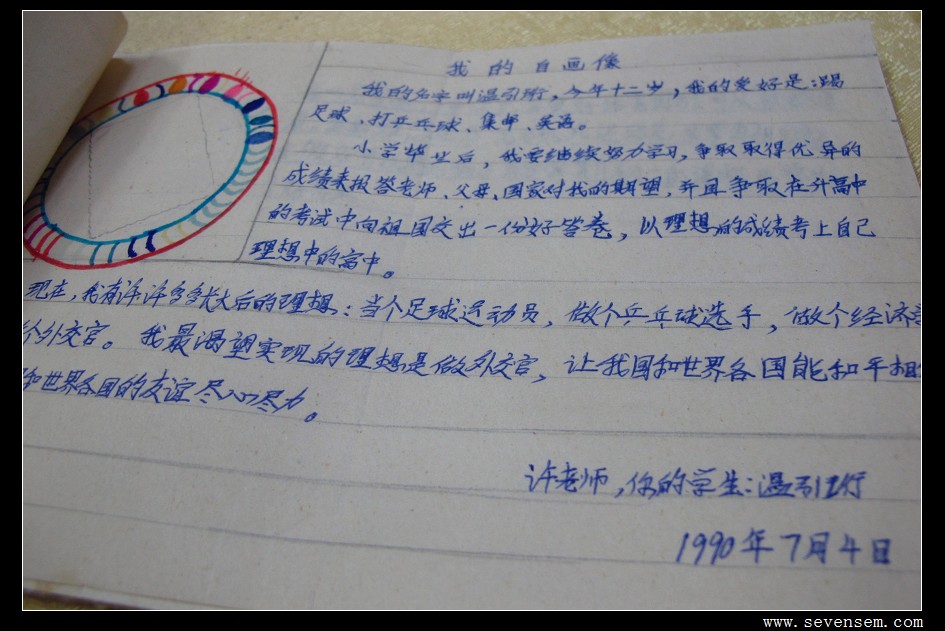 我的自画像
我的名字叫温引珩，今年十二岁，我的爱好是：踢
足球、打乒乓球、集邮、英语。
小学毕业后，我要继续努力学习，争取取得优异的
成绩来报答老师、父母、国家对我的期望，并且争取在升高中
的考试中向祖国交出一份好答卷，以理想的成绩考上自己
理想中的高中。
现在，我有许许多多长大后的理想：当个足球运动员，做个乒乓球选手，做个经济
个外交官。我最渴望实现的理想是做外交官，让我国和世界各国能和平相
和世界各国的友谊尽心尽力。
许老师，你的学生：温引珩
1990年7月4日
www.sevensem.com